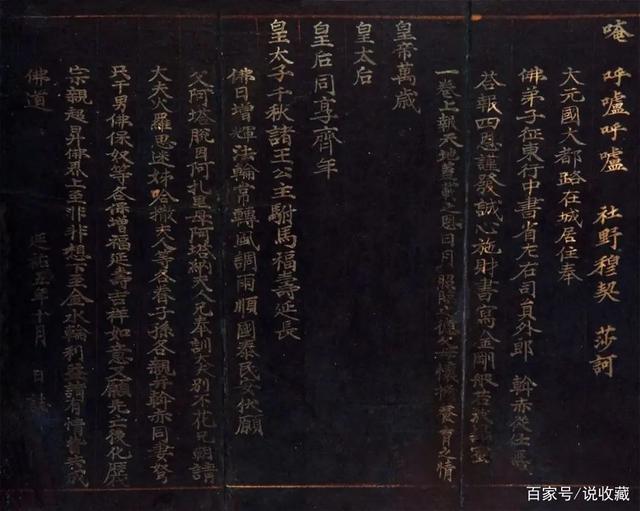 唵 呼嚧呼嚧 社野穆契 莎訶
大元國大都路在城居住奉
佛弟子征東行中書省左右司員外郎 幹赤從仕
荅報四恩謹發誠心施財書寫金剛般若
一卷上報天地
皇帝萬歲
皇太后
皇后同享齊年
皇太子千秋諸王公主駙馬福壽延長
佛日增輝法輪常轉風調雨順國泰民安伏願
父阿塔脫目阿扎思母阿塔納夫人元奉訓大夫別不花兄朝請
大夫火羅思迷姊哈撒夫人等各眷子孫各親并幹赤同妻
只干男佛保奴等各保增福延壽吉祥如意又願先亡後化
宗親超昇佛界上至非非想下至金水輪利益諸有情皆共成
佛道 延祐 年十月 日誌
百家号/说收藏